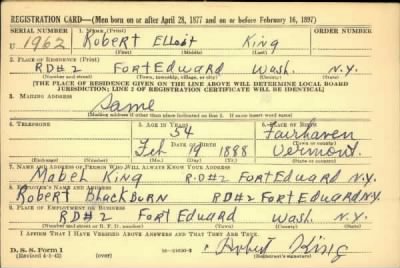 REGISTRATION CARD—(Men born on or after April 28, 1877 and on or before February 16, 1897)
SERIAL NUMBER 1. NAME (Print) ORDER NUMBER
U 1962 Robert Elliot King
(First) (Middle) (Last)
2. PLACE OF RESIDENCE (Print)
RD#2 Fort Edward Wash. N.Y.
(Number and street) (Town, township, village, or city) (County) (State)
[THE PLACE OF RESIDENCE GIVEN ON THE LINE ABOVE WILL DETERMINE LOCAL BOARD
JURISDICTION; LINE 2 OF REGISTRATION CERTIFICATE WILL BE IDENTICAL]
3. MAILING ADDRESS
Same
[Mailing address if other than place indicated on line 2. If same insert word same]
4. TELEPHONE 5. AGE IN YEARS 6. PLACE OF BIRTH
54 Fairhaven
DATE OF BIRTH (Town or county)
Feb 1888 Vermont
(Exchange) (Number) (Mo.) (Day) (Yr.) (State or country)
7. NAME AND ADDRESS OF PERSON WHO WILL ALWAYS KNOW YOUR ADDRESS
Mabel King R.D#2 Fort Edward N.Y.
8. EMPLOYER'S NAME AND ADDRESS
Robert Blackburn RD#2 Fort Edward N.Y.
9. PLACE OF EMPLOYMENT OR BUSINESS
RD#2 Fort Edward Wash. N.Y.
(Number and street or R. F. D. number) (Town) (County) (State)
I AFFIRM THAT I HAVE VERIFIED ABOVE ANSWERS AND THAT THEY ARE TRUE.
D. S. S. Form 1 Robert King
(Revised 4-1-42) (over) (Registrant's signature)